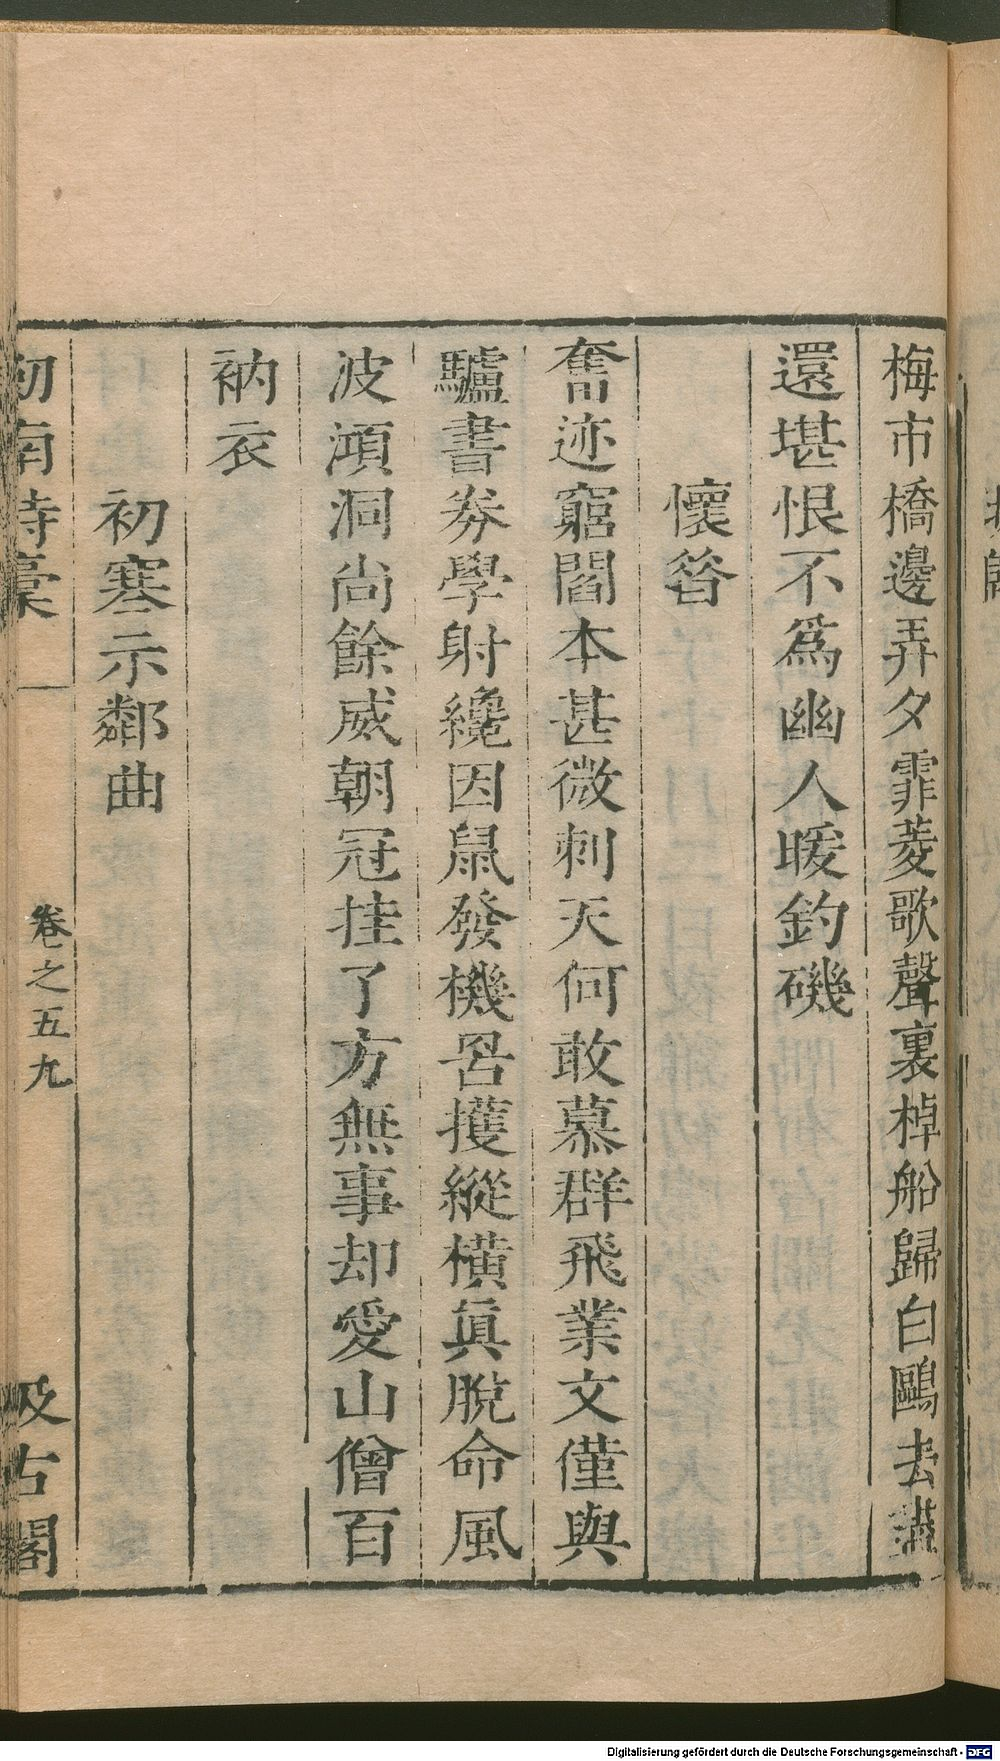 梅市橋邊弄夕霏菱歌聲裏棹船歸白鷗去盡
還堪恨不爲幽人暖釣磯
懷昝
奮迹窮閻本甚微刺天何敢慕群飛業文僅與
驢書券學射纔因鼠發機罟擭縱橫眞脫命風
波澒洞尚餘威朝冠挂了方無事却愛山僧百
衲衣
初寒示鄰曲
劒南詩藁
卷之五九
汲古閣
Digitalisierung gefördert durch die Deutsche Forschungsgemeinschaft - DFG